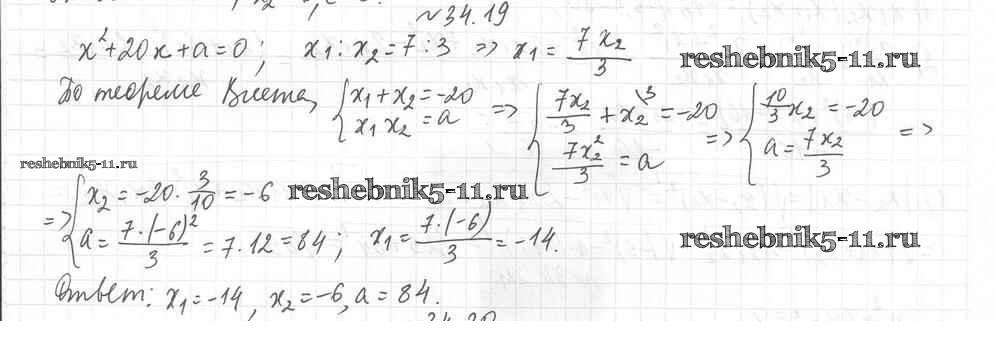 №34.19
x²+20x+a=0; x₁:x₂=7:3 => x₁=7x₂/3
reshebnik5-11.ru
По теореме Виета, {x₁+x₂=-20 x₁x₂=a => {7x₂/3+x₂\³=-20 7x₂²/3=a => {10/3x₂=-20 a=7x₂/3 =>
reshebnik5-11.ru
=> {x₂=-20·3/10=-6 a=7·(-6)²/3=7·12=84; x₁=7·(-6)/3=-14.
reshebnik5-11.ru
reshebnik5-11.ru
Ответ: x₁=-14, x₂=-6, a=84.